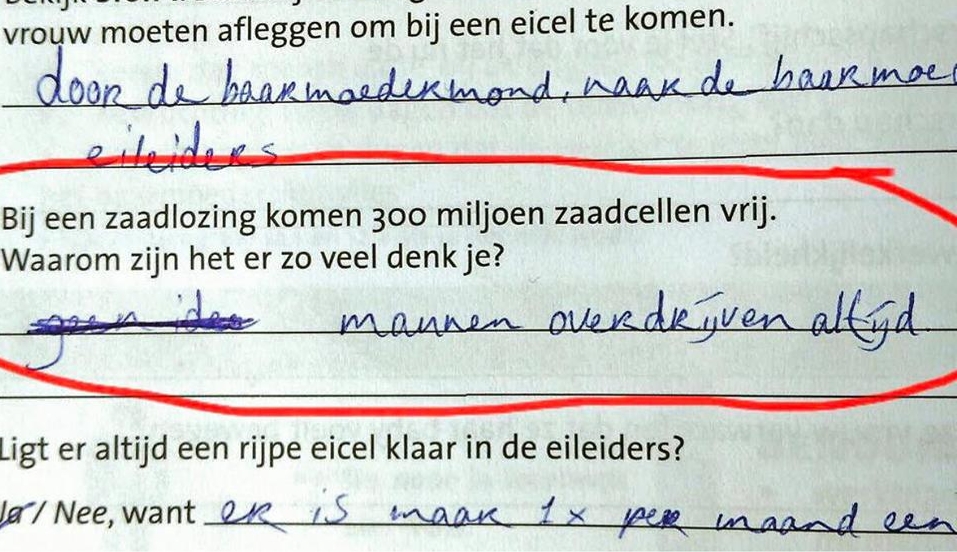 vrouw moeten afleggen om bij een eicel te komen.
door de baarmoedermond, naar de baarmoe
eileiders
Bij een zaadlozing komen 300 miljoen zaadcellen vrij.
Waarom zijn het er zo veel denk je?
geen idee mannen overdrijven altijd
Ligt er altijd een rijpe eicel klaar in de eileiders?
Ja / Nee, want er is maar 1x per maand een